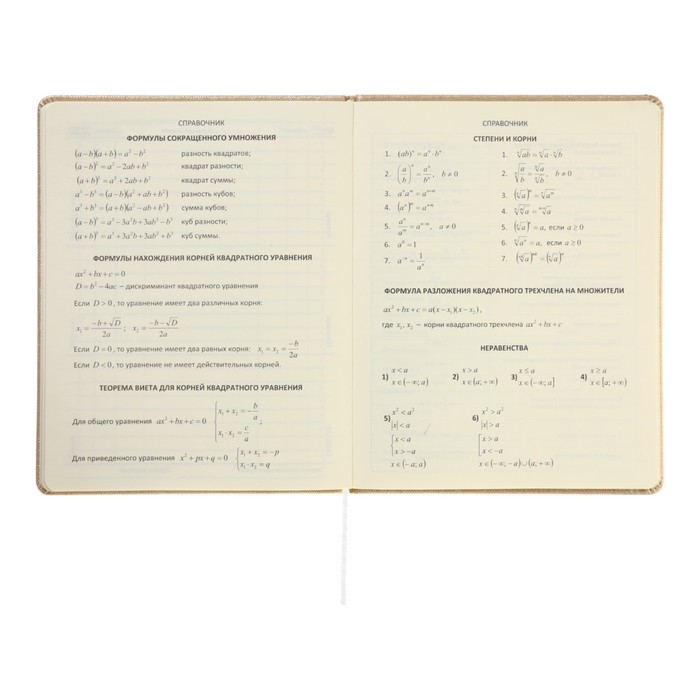 СПРАВОЧНИК
ФОРМУЛЫ СОКРАЩЕННОГО УМНОЖЕНИЯ
(a−b)(a+b)=a²−b² разность квадратов;
(a−b)²=a²−2ab+b² квадрат разности;
(a+b)²=a²+2ab+b² квадрат суммы;
a³−b³=(a−b)(a²+ab+b²) разность кубов;
a³+b³=(a+b)(a²−ab+b²) сумма кубов;
(a−b)³=a³−3a²b+3ab²−b³ куб разности;
(a+b)³=a³+3a²b+3ab²+b³ куб суммы.
ФОРМУЛЫ НАХОЖДЕНИЯ КОРНЕЙ КВАДРАТНОГО УРАВНЕНИЯ
ax²+bx+c=0
D=b²−4ac − дискриминант квадратного уравнения
Если D>0, то уравнение имеет два различных корня:
x₁=(−b+√D)/2a; x₂=(−b−√D)/2a
Если D=0, то уравнение имеет два равных корня: x₁=x₂=−b/2a
Если D<0, то уравнение не имеет действительных корней.
ТЕОРЕМА ВИЕТА ДЛЯ КОРНЕЙ КВАДРАТНОГО УРАВНЕНИЯ
Для общего уравнения ax²+bx+c=0 {x₁+x₂=−b/a; x₁·x₂=c/a;
Для приведенного уравнения x²+px+q=0 {x₁+x₂=−p x₁·x₂=q
СПРАВОЧНИК
СТЕПЕНИ И КОРНИ
1. (ab)ⁿ=aⁿ·bⁿ
2. (a/b)ⁿ=aⁿ/bⁿ, b≠0
3. aⁿaᵐ=aⁿ⁺ᵐ
4. (aⁿ)ᵐ=aⁿ*ᵐ
5. aⁿ/aᵐ=aⁿ⁻ᵐ, a≠0
6. a⁰=1
7. a⁻ⁿ=1/aⁿ
1. ⁿ√ab=ⁿ√a·ⁿ√b
2. ⁿ√(a/b)=ⁿ√a/ⁿ√b, b≠0
3. (ⁿ√a)ᵐ=ⁿ√aᵐ
4. ᵐ√ⁿ√a=ᵐⁿ√a
5. (ⁿ√a)ⁿ=a, если a≥0
6. ⁿ√aⁿ=a, если a≥0
ФОРМУЛА РАЗЛОЖЕНИЯ КВАДРАТНОГО ТРЕХЧЛЕНА НА МНОЖИТЕЛИ
ax²+bx+c=a(x−x₁)(x−x₂),
где x₁, x₂ − корни квадратного трехчлена ax²+bx+c
НЕРАВЕНСТВА
1) x<a x∈(−∞;a)
2) x>a x∈(a;+∞)
3) x≤a x∈(−∞;a]
4) x≥a x∈[a;+∞)
5) x²<a²
|x|<a
{x<a x>−a
x∈(−a;a)
6) x²>a²
|x|>a
[x>a x<−a
x∈(−∞;−a)∪(a;+∞)